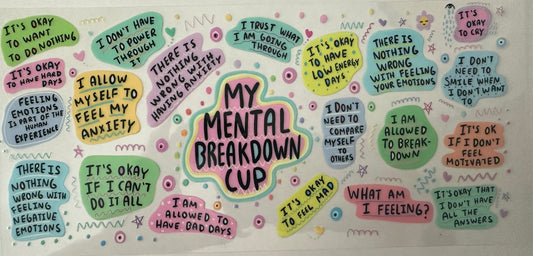 IT'S OKAY
TO WANT
TO DO NOTHING
I DON'T HAVE
TO POWER
THROUGH
IT
I TRUST WHAT
I AM GOING
THROUGH
IT'S OKAY
TO HAVE
LOW ENERGY
DAYS
THERE IS
NOTHING
WRONG
WITH FEELING
YOUR EMOTIONS
IT'S
OKAY
TO CRY
IT'S OKAY
TO HAVE HARD
DAYS
I ALLOW
MYSELF TO
FEEL MY
ANXIETY
THERE IS
NOTHING
WRONG WITH
HAVING ANXIETY
I DON'T
NEED TO
SMILE WHEN
I DON'T WANT
TO
FEELING
EMOTIONS
IS PART OF THE
HUMAN
EXPERIENCE
MY
MENTAL
BREAKDOWN
CUP
I DON'T
NEED TO
COMPARE
MYSELF
TO
OTHERS
I AM
ALLOWED
TO BREAK-
DOWN
IT'S OK
IF I DON'T
FEEL
MOTIVATED
THERE IS
NOTHING
WRONG WITH
FEELING
NEGATIVE
EMOTIONS
IT'S OKAY
IF I CAN'T
DO IT ALL
I AM
ALLOWED TO
HAVE BAD DAYS
IT'S OKAY
TO FEEL MAD
WHAT AM
I FEELING?
IT'S OKAY THAT
I DON'T HAVE
ALL THE
ANSWERS